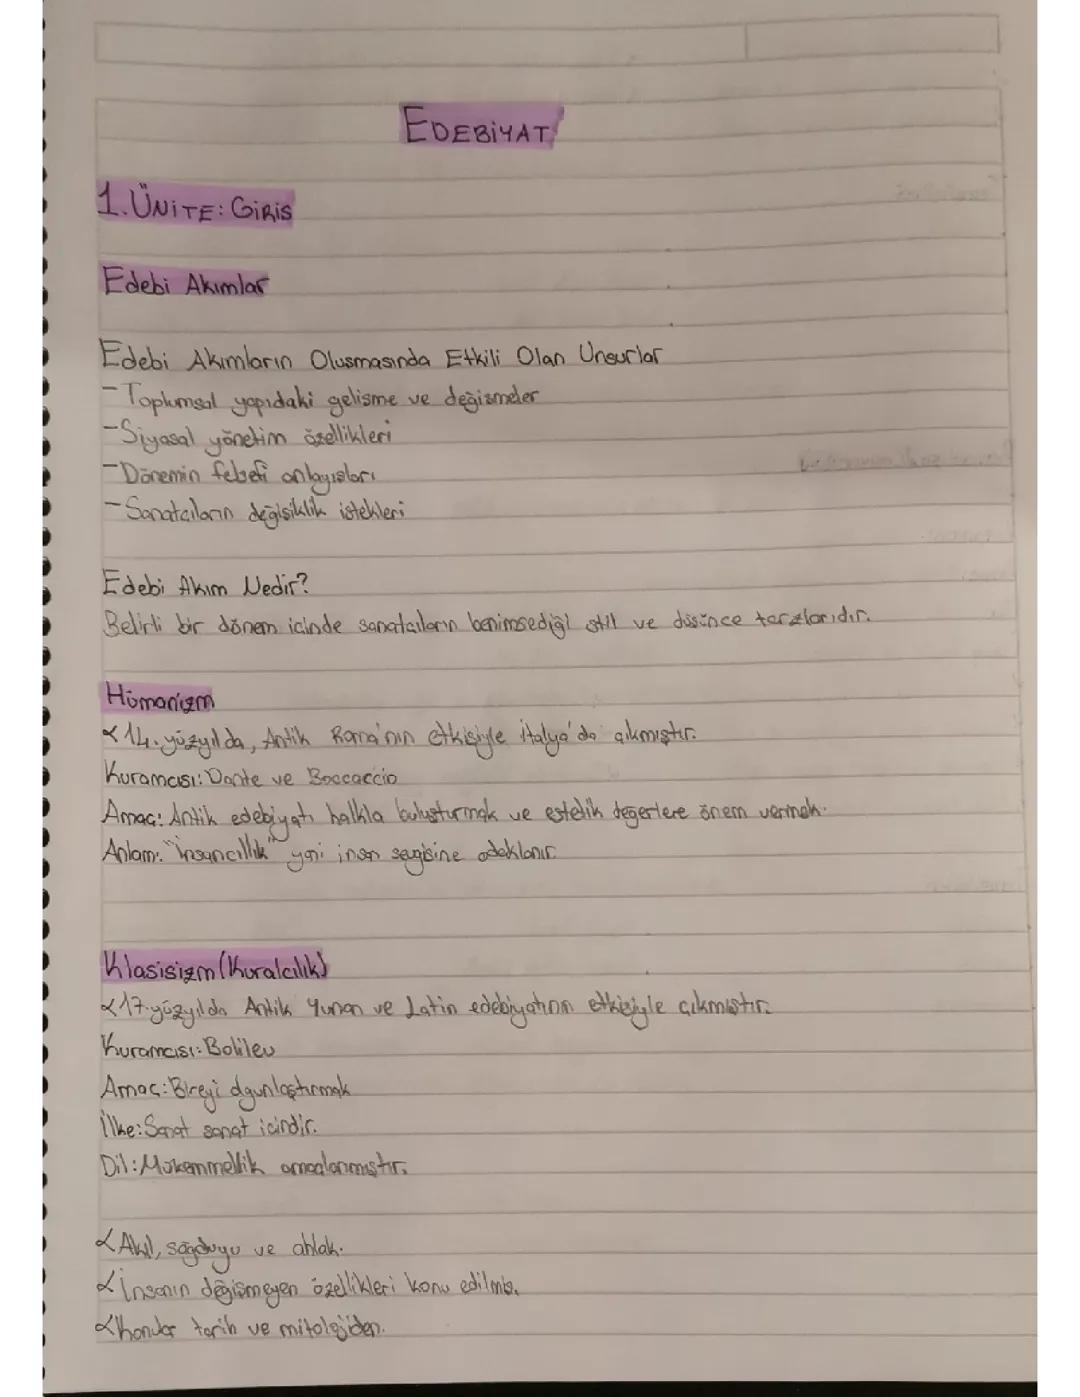 EDEBİYAT
1.ÜNİTE: GİRİS
Edebi Akımlar
Edebi Akımların Olusmasında Etkili Olan Unsurlar
-Toplumsal yapıdaki gelisme ve değismeler
-Siyasal yönetim özellikleri
-Dönemin felsefi anlayısları
-Sanatcıların değişiklik istekleri
Edebi Akım Nedir?
Belirli bir dönem icinde sanatcıların benimsediği stil ve düsünce tarzlarıdır.
Hümanizm
14.yüzyılda, Antik Roma'nın etkisiyle İtalya'da çıkmıştır.
Kuramcısı: Dante ve Boccaccio
Amaç: Antik edebiyatı halkla buluşturmak ve estetik değerlere önem vermek.
Anlam: "İnsancıllık" yani insan sevgisine odaklanır.
Klasisizm (Kuralcılık)
17.yüzyılda Antik Yunan ve Latin edebiyatının etkisiyle çıkmıştır.
Kuramcısı: Boilieu
Amaç: Bireyi olgunlaştırmak
İlke: Sanat sanat icindir.
Dil: Mükemmellik amaclanmıştır.
Akıl, sağduyu ve ahlak.
İnsanın değişmeyen özellikleri konu edilmiş.
Konular tarih ve mitolojiden.